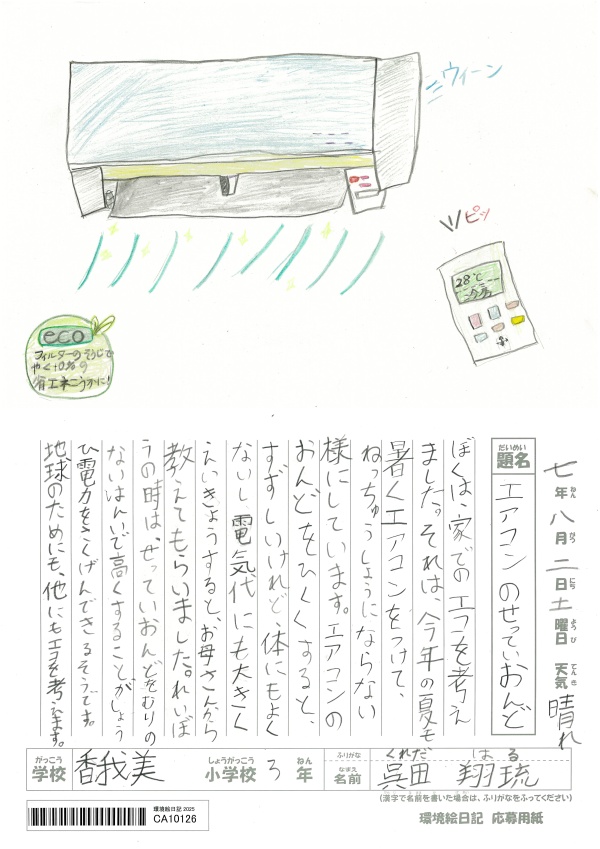 ウィーン
ピッ
28℃
冷房
eco
フィルターのそうじで
やく10%の
省エネこうかに!
七年八月二日土曜日 天気晴れ
ねん がつ にち ようび てんき
だいめい
題名 エアコンのせっていおんど
ぼくは、家でのエコを考え
ました。それは、今年の夏も
暑くエアコンをつけて、
ねっちゅうしょうにならない
様にしています。エアコンの
おんどをひくくすると、
すずしいけれど、体にもよく
ないし、電気代にも大きく
えいきょうすると、お母さんから
教えてもらいました。れいぼ
うの時は、せっていおんどをむりの
ないはんいで高くすることがしょう
ひ電力をさくげんできるそうです。
地球のためにも、他にもエコを考えます。
がっこう しょうがっこう ねん
学校 香我美 小学校 3 年
ふりがな くれだ はる
なまえ
名前 呉田 翔琉
(漢字で名前を書いた場合は、ふりがなをふってください)
環境絵日記 2025
CA10126
環境絵日記 応募用紙